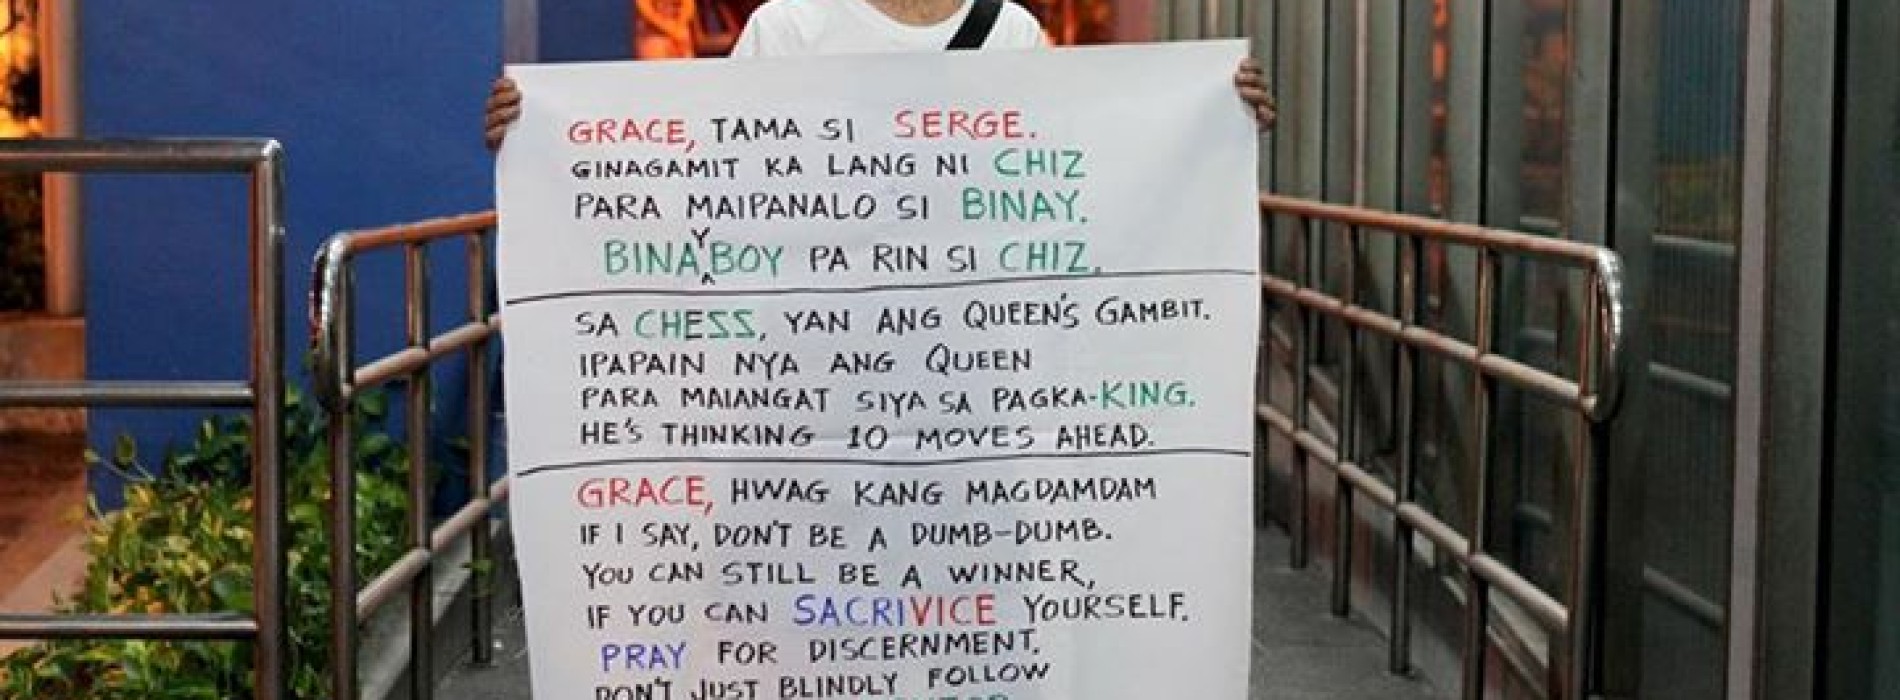 GRACE, TAMA SI SERGE.
GINAGAMIT KA LANG NI CHIZ
PARA MAIPANALO SI BINAY.
BINAYBOY PA RIN SI CHIZ.
SA CHESS, YAN ANG QUEEN'S GAMBIT.
IPAPAIN NYA ANG QUEEN
PARA MAIANGAT SIYA SA PAGKA-KING.
HE'S THINKING 10 MOVES AHEAD.
GRACE, HWAG KANG MAGDAMDAM
IF I SAY, DON'T BE A DUMB-DUMB.
YOU CAN STILL BE A WINNER,
IF YOU CAN SACRIVICE YOURSELF.
PRAY FOR DISCERNMENT.
DON'T JUST BLINDLY FOLLOW